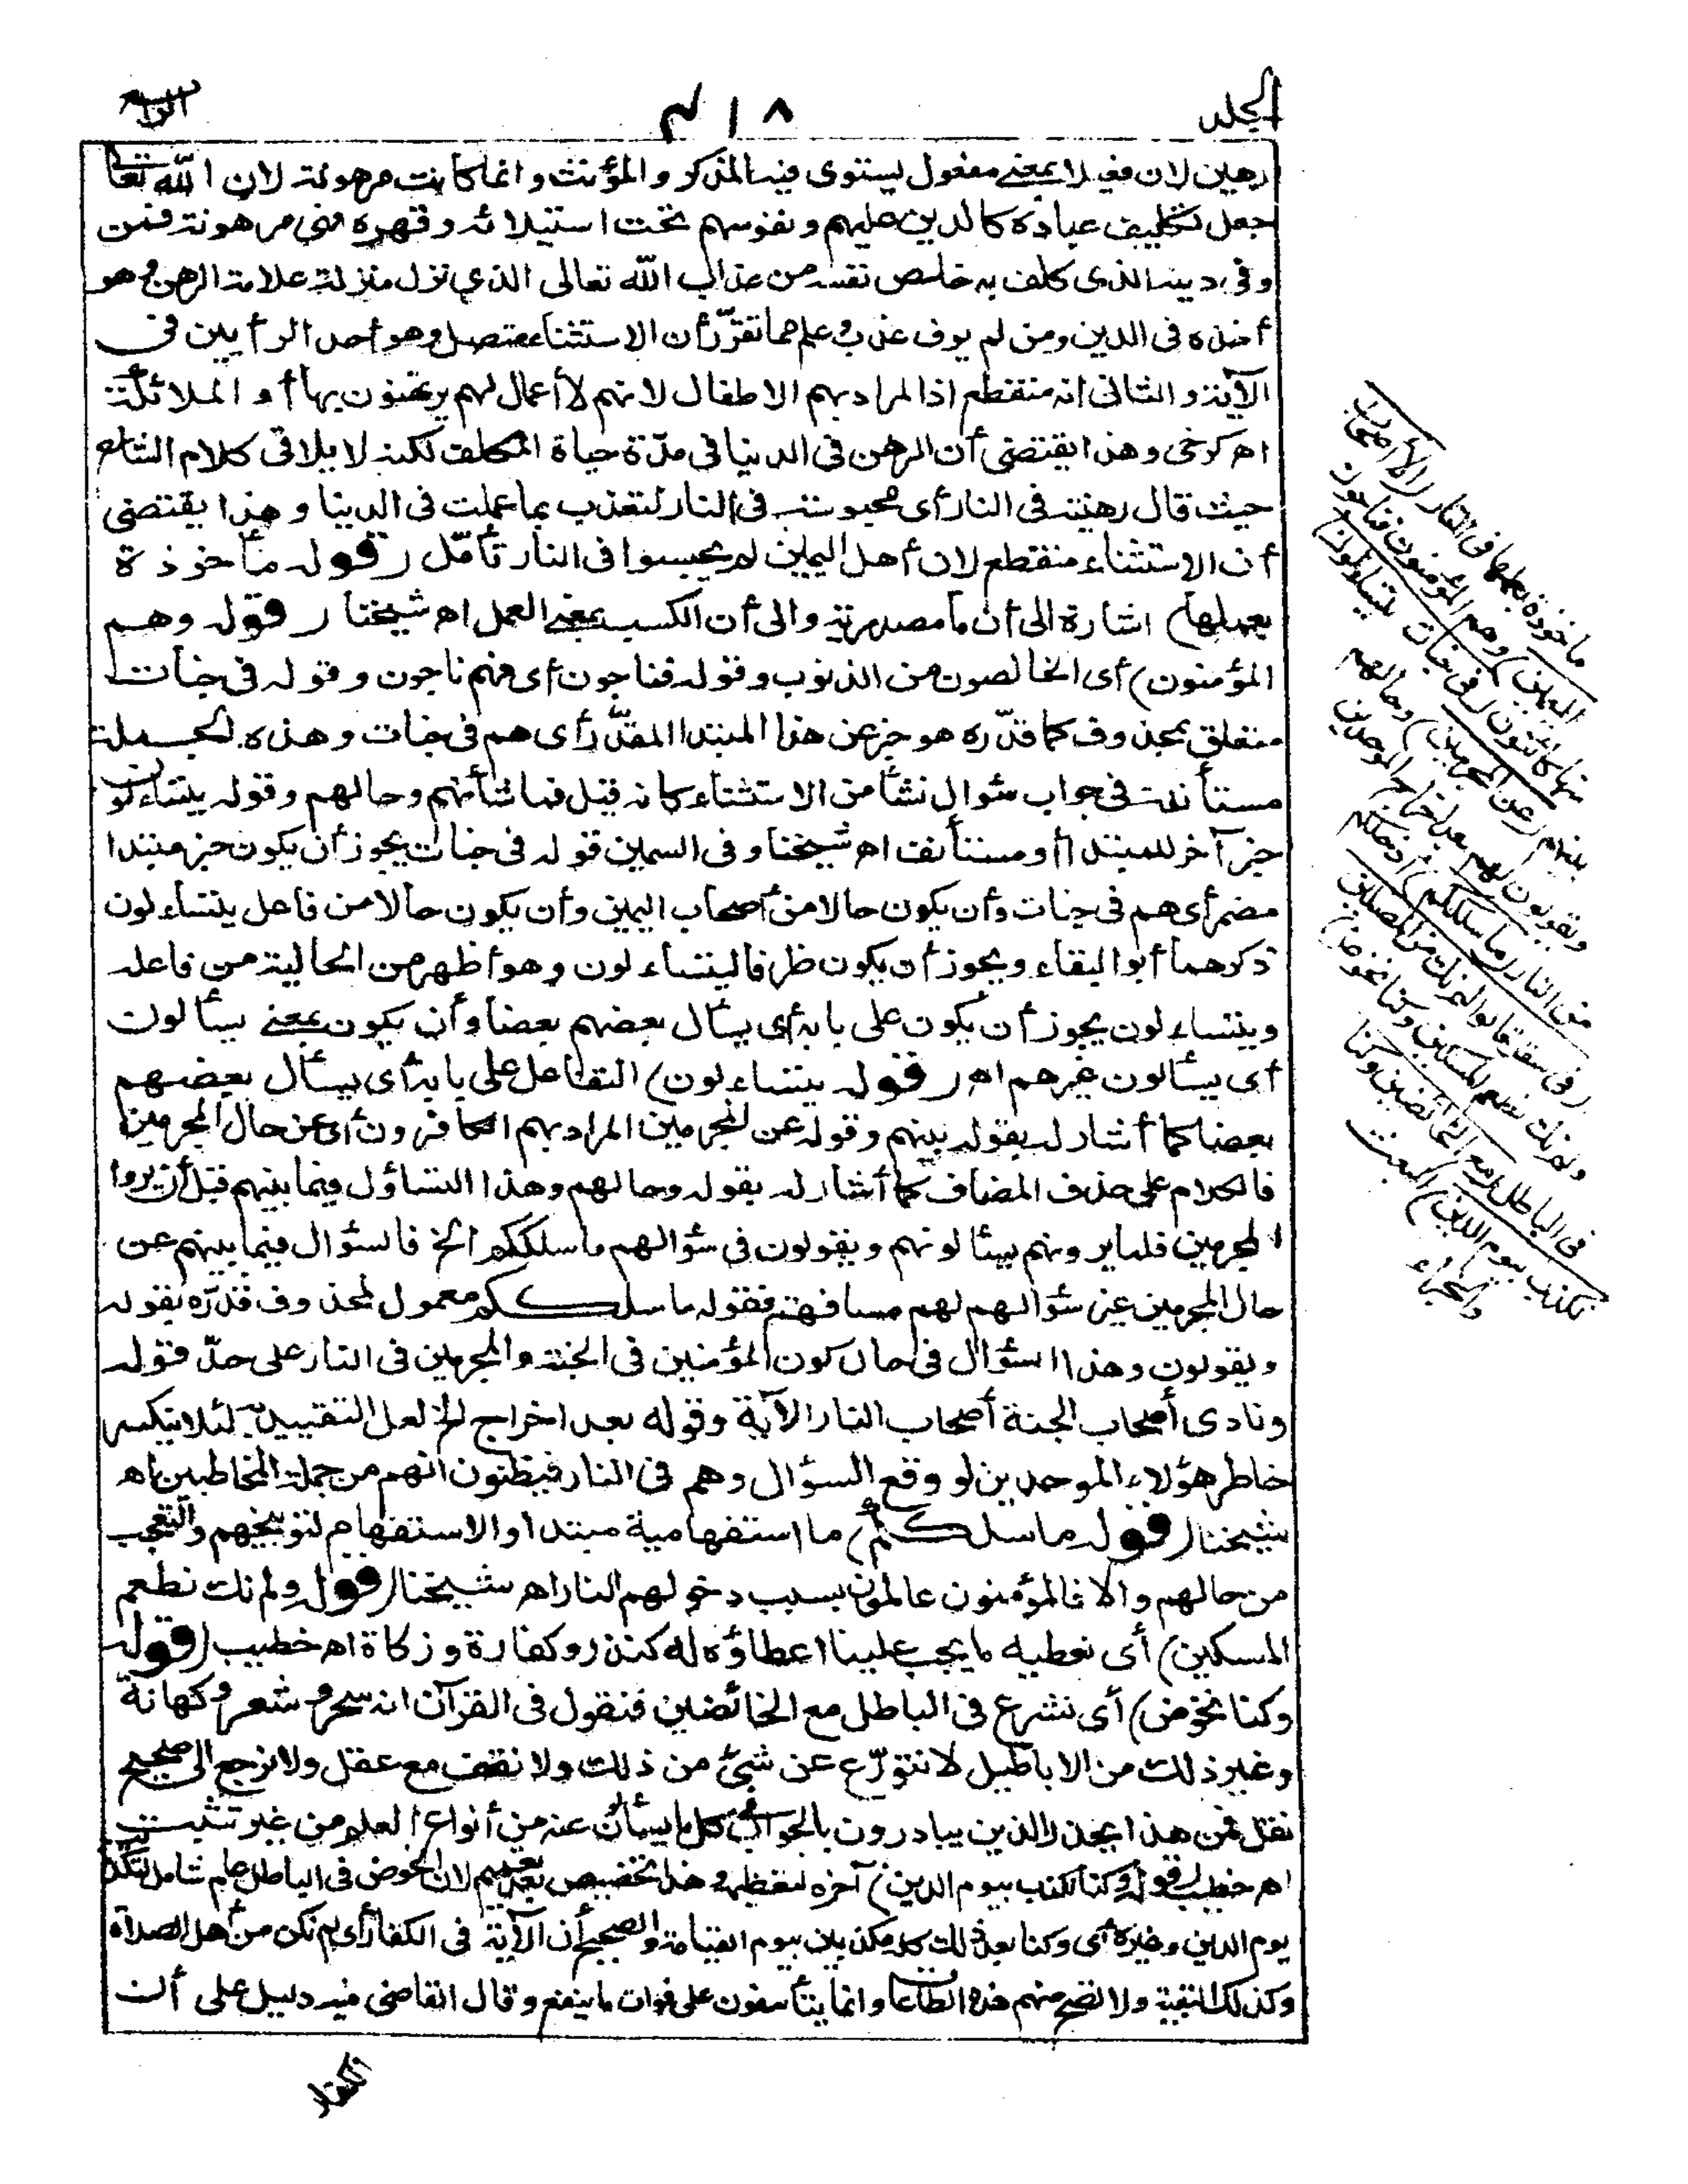 الجلد
٤١٨
الرابع
رهين لان فعيلا بمعنى مفعول يستوى فيه المذكر والمؤنث وانما كانت مرهونة لان الله تعالى
جعل تكليف عباده كالدين عليهم ونفوسهم تحت استيلائه وقهره فهى مرهونة فمن
وفى دينه الذى كلف به خلص نفسه من عذاب الله تعالى الذى نزل منزلة علامة الرهن وهو
أخذه فى الدين ومن لم يوف عذب وعلم مما تقرر أن الاستثناء متصل وهو أحد الرأيين فى
الآية والثانى انه منقطع اذا المراد بهم الاطفال لانهم لا أعمال لهم يرتهنون بها أو الملائكة
اه كرخى وهذا يقتضى أن الرهن فى الدنيا فى مدّة حياة المكلف لكنه لا يلاقى كلام الشارح
حيث قال رهينة فى النار أى محبوسة فى النار لتعذب بما عملت فى الدنيا وهذا يقتضى
أن الاستثناء منقطع لان أهل اليمين لم يحبسوا فى النار تأمّل (قوله مأخوذة
بعملها) اشارة الى أن ما مصدرية والى أن الكسب بمعنى العمل اه شيخنا (قوله وهم
المؤمنون) أى الخالصون من الذنوب وقوله فناجون أى فهم ناجون وقوله فى جنات
متعلق بمحذوف كما قدّره هو خبر عن هذا المبتدا المقدّر أى هم فى جنات وهذه الجملة
مستأنفة فى جواب سؤال نشأ من الاستثناء كانه قيل فما شأنهم وحالهم وقوله يتساءلون
خبر آخر للمبتدا أو مستأنف اه شيخنا وفى السمين قوله فى جنات يجوز أن يكون خبر مبتدا
مضمر أى هم فى جنات وأن يكون حالا من أصحاب اليمين وأن يكون حالا من فاعل يتساءلون
ذكرهما أبو البقاء ويجوز أن يكون ظرفا ليتساءلون وهو أظهر من الحالية من فاعله
ويتساءلون يجوز أن يكون على بابه أى يسأل بعضهم بعضا وأن يكون بمعنى يسألون
أى يسألون غيرهم اه (قوله يتساءلون) التفاعل على بابه أى يسأل بعضهم
بعضا كما أشار له بقوله بينهم وقوله عن المجرمين المراد بهم الكافرون أى عن حال المجرمين
فالكلام على حذف المضاف كما أشار له بقوله وحالهم وهذا التساؤل فيما بينهم قبل أن يروا
المجرمين فلما يرونهم يسألونهم ويقولون فى سؤالهم ما سلككم الخ فالسؤال فيما بينهم عن
حال المجرمين غير سؤالهم لهم مسافهة فقوله ما سلككم معمول لمحذوف قدّره بقوله
ويقولون وهذا السؤال فى حال كون المؤمنين فى الجنة والمجرمين فى النار على حدّ قوله
ونادى أصحاب الجنة أصحاب النار الآية وقوله بعد اخراج الخ لعل التقييد به لئلا ينكسر
خاطر هؤلاء الموحدين لو وقع السؤال وهم فى النار فيظنون انهم من جملة المخاطبين اه
شيخنا (قوله ما سلككم) ما استفهامية مبتدا والاستفهام لتوبيخهم والتعجب
من حالهم والا فالمؤمنون عالمون بسبب دخولهم النار اه شيخنا (قوله ولم نك نطعم
المسكين) أى نعطيه ما يجب علينا اعطاؤه له كنذر وكفارة وزكاة اه خطيب (قوله
وكنا نخوض) أى نشرع فى الباطل مع الخائضين فنقول فى القرآن انه سحر وشعر وكهانة
وغير ذلك من الاباطيل لا نتورّع عن شئ من ذلك ولا نقف مع عقل ولا نرجع الى صحيح
نقل فمن هذا يحذر الذين يبادرون بالجواب كل ما يسألون عنه من أنواع العلم من غير تثبت
اه خطيب (قوله وكنا نكذب بيوم الدين) آخره لتعظيمه وهذا تخصيص بعد تعميم لان الخوض فى الباطل عام شامل لتكذيب
يوم الدين وغيره أى وكنا بعد ذلك كله مكذبين بيوم القيامة والصحيح أن الآية فى الكفار أى لم نكن من أهل الصلاة
وكذلك البقية ولا تصح منهم هذه الطاعات وانما يتأسفون على فوات ما ينفع وقال القاضى فيه دليل على أن
مأخوذة بعملها فى النار (الا أصحاب
اليمين) وهم المؤمنون فناجون
منها كائنون (فى جنات يتساءلون)
بينهم (عن المجرمين) وحالهم
ويقولون لهم بعد اخراج الموحدين
من النار (ما سلككم) أدخلكم
(فى سقر قالوا لم نك من المصلين
ولم نك نطعم المسكين وكنا نخوض)
فى الباطل (مع الخائضين وكنا
نكذب بيوم الدين) البعث
والجزاء